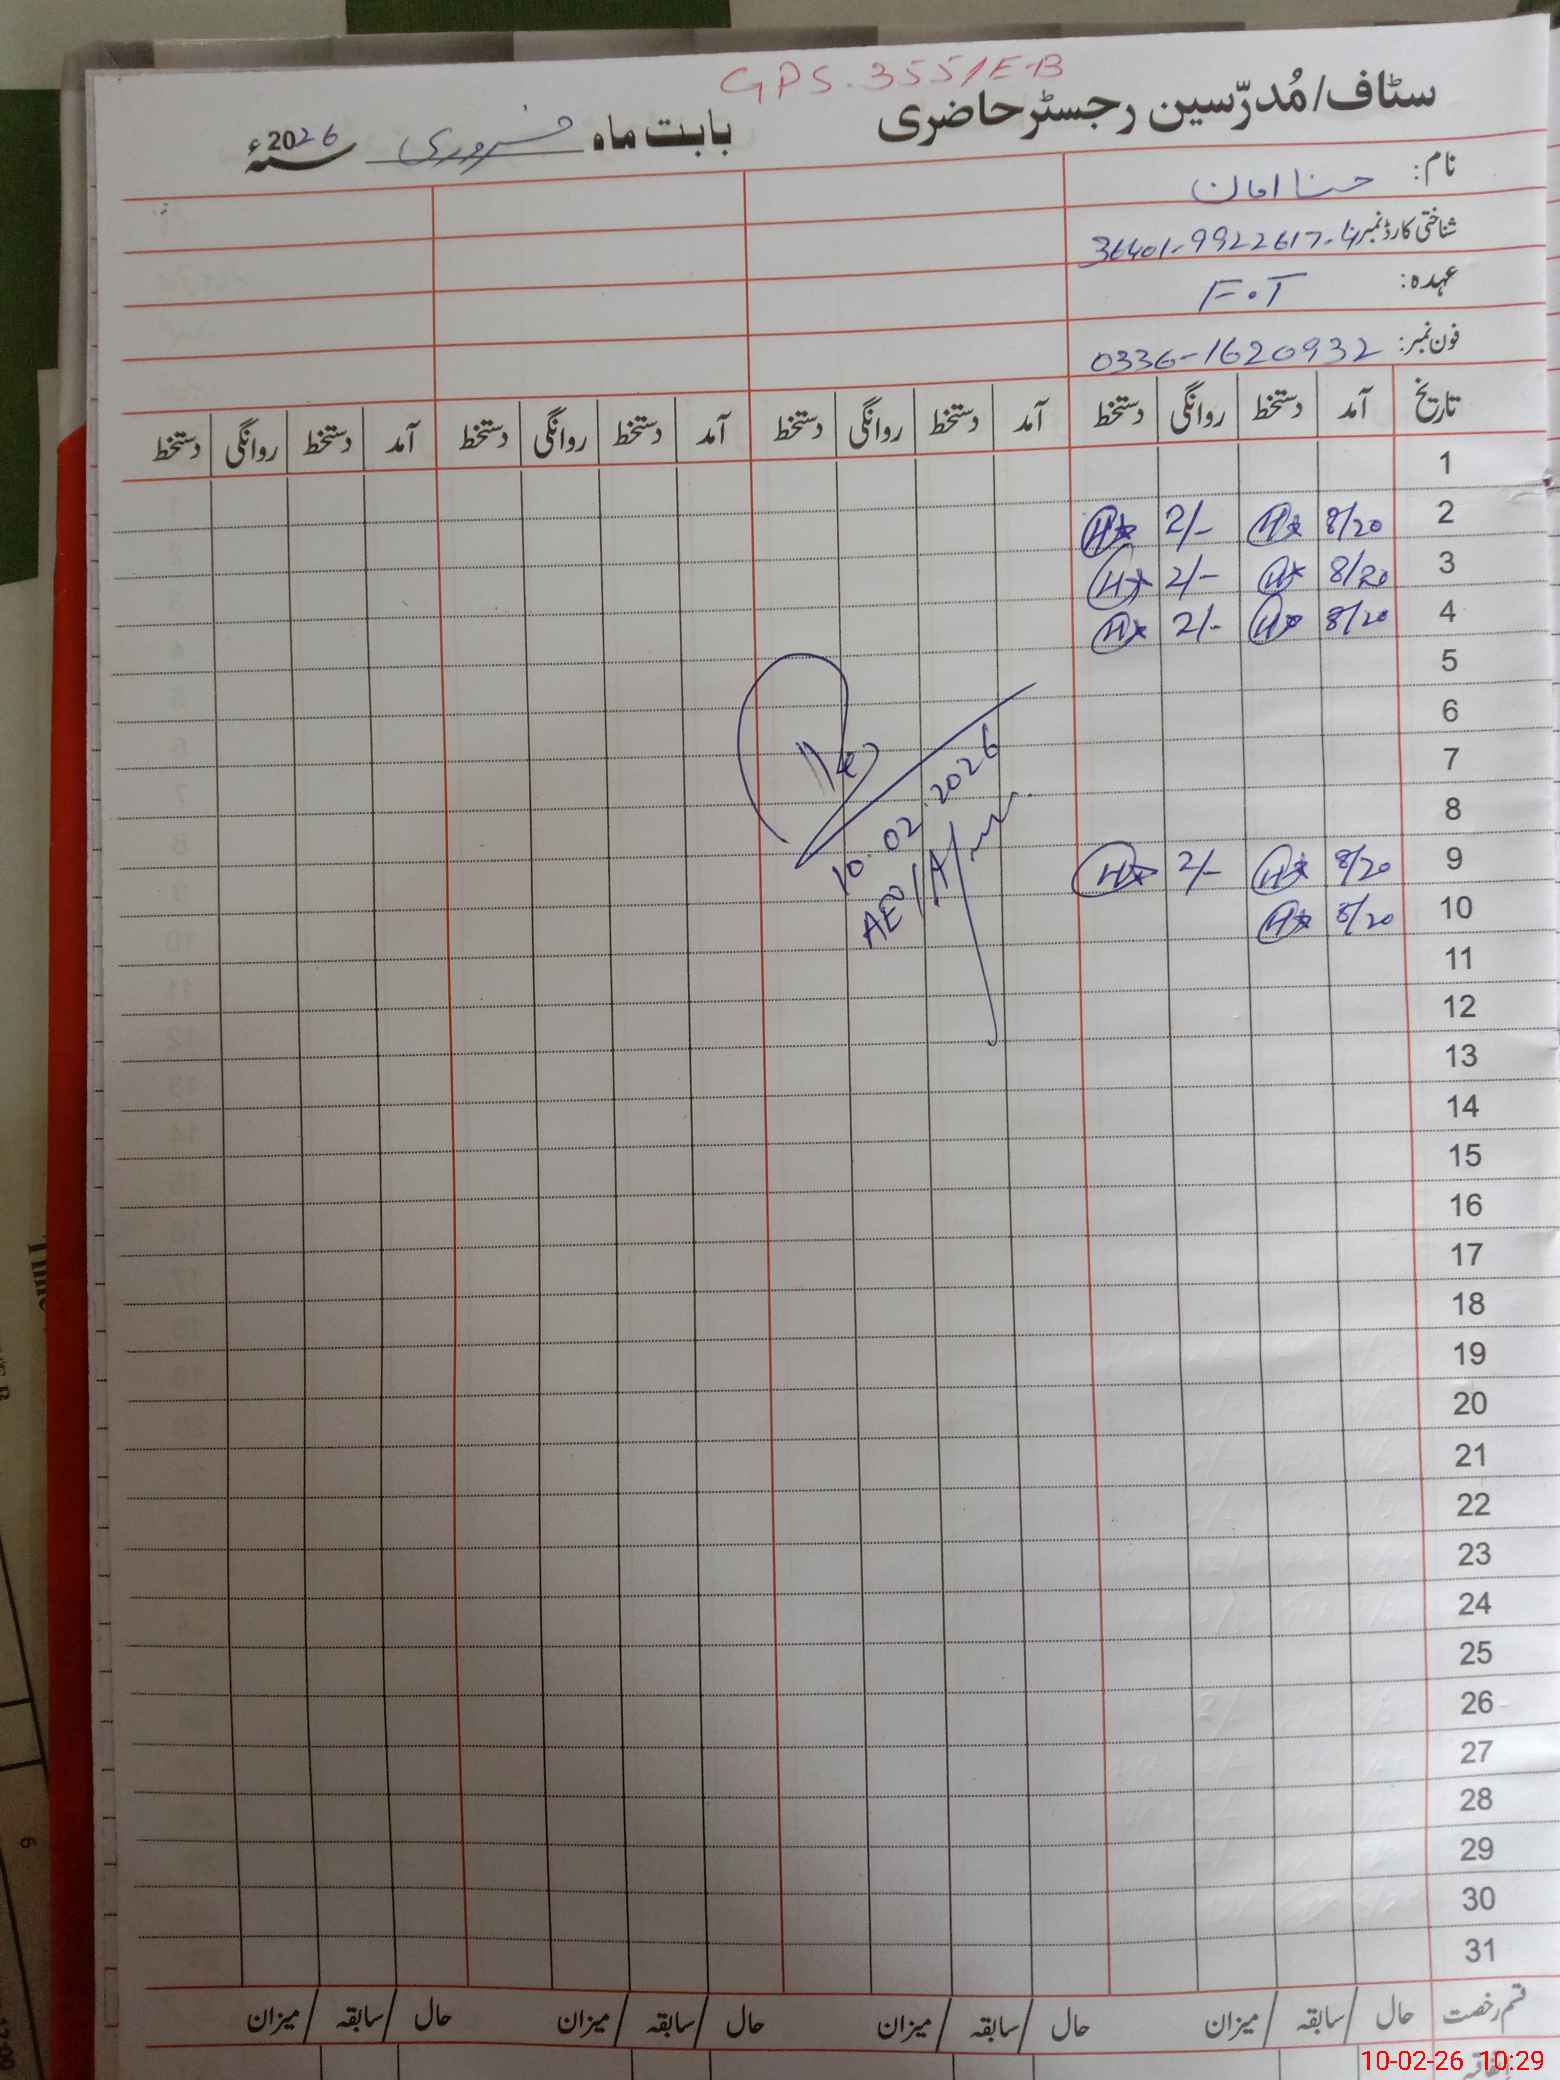 GPS.355/E-B
سٹاف/مُدرّسین رجسٹر حاضری بابت ماہ فروری سنہ 2026ء
نام: حنا امان
شناختی کارڈ نمبر: 36401-9922617-4
عہدہ: F.T
فون نمبر: 0336-1620932
تاریخ آمد دستخط روانگی دستخط آمد دستخط روانگی دستخط آمد دستخط روانگی دستخط آمد دستخط روانگی دستخط
1
2 8/20 H 2/- H
3 8/20 H 2/- H
4 8/20 H 2/- H
5
6
7
8
9 8/20 H 2/- H
10 8/20 H
10.02.2026
AEO/A/
11
12
13
14
15
16
17
18
19
20
21
22
23
24
25
26
27
28
29
30
31
قسم رخصت حال/سابقہ/میزان حال/سابقہ/میزان حال/سابقہ/میزان حال/سابقہ/میزان
10-02-26 10:29